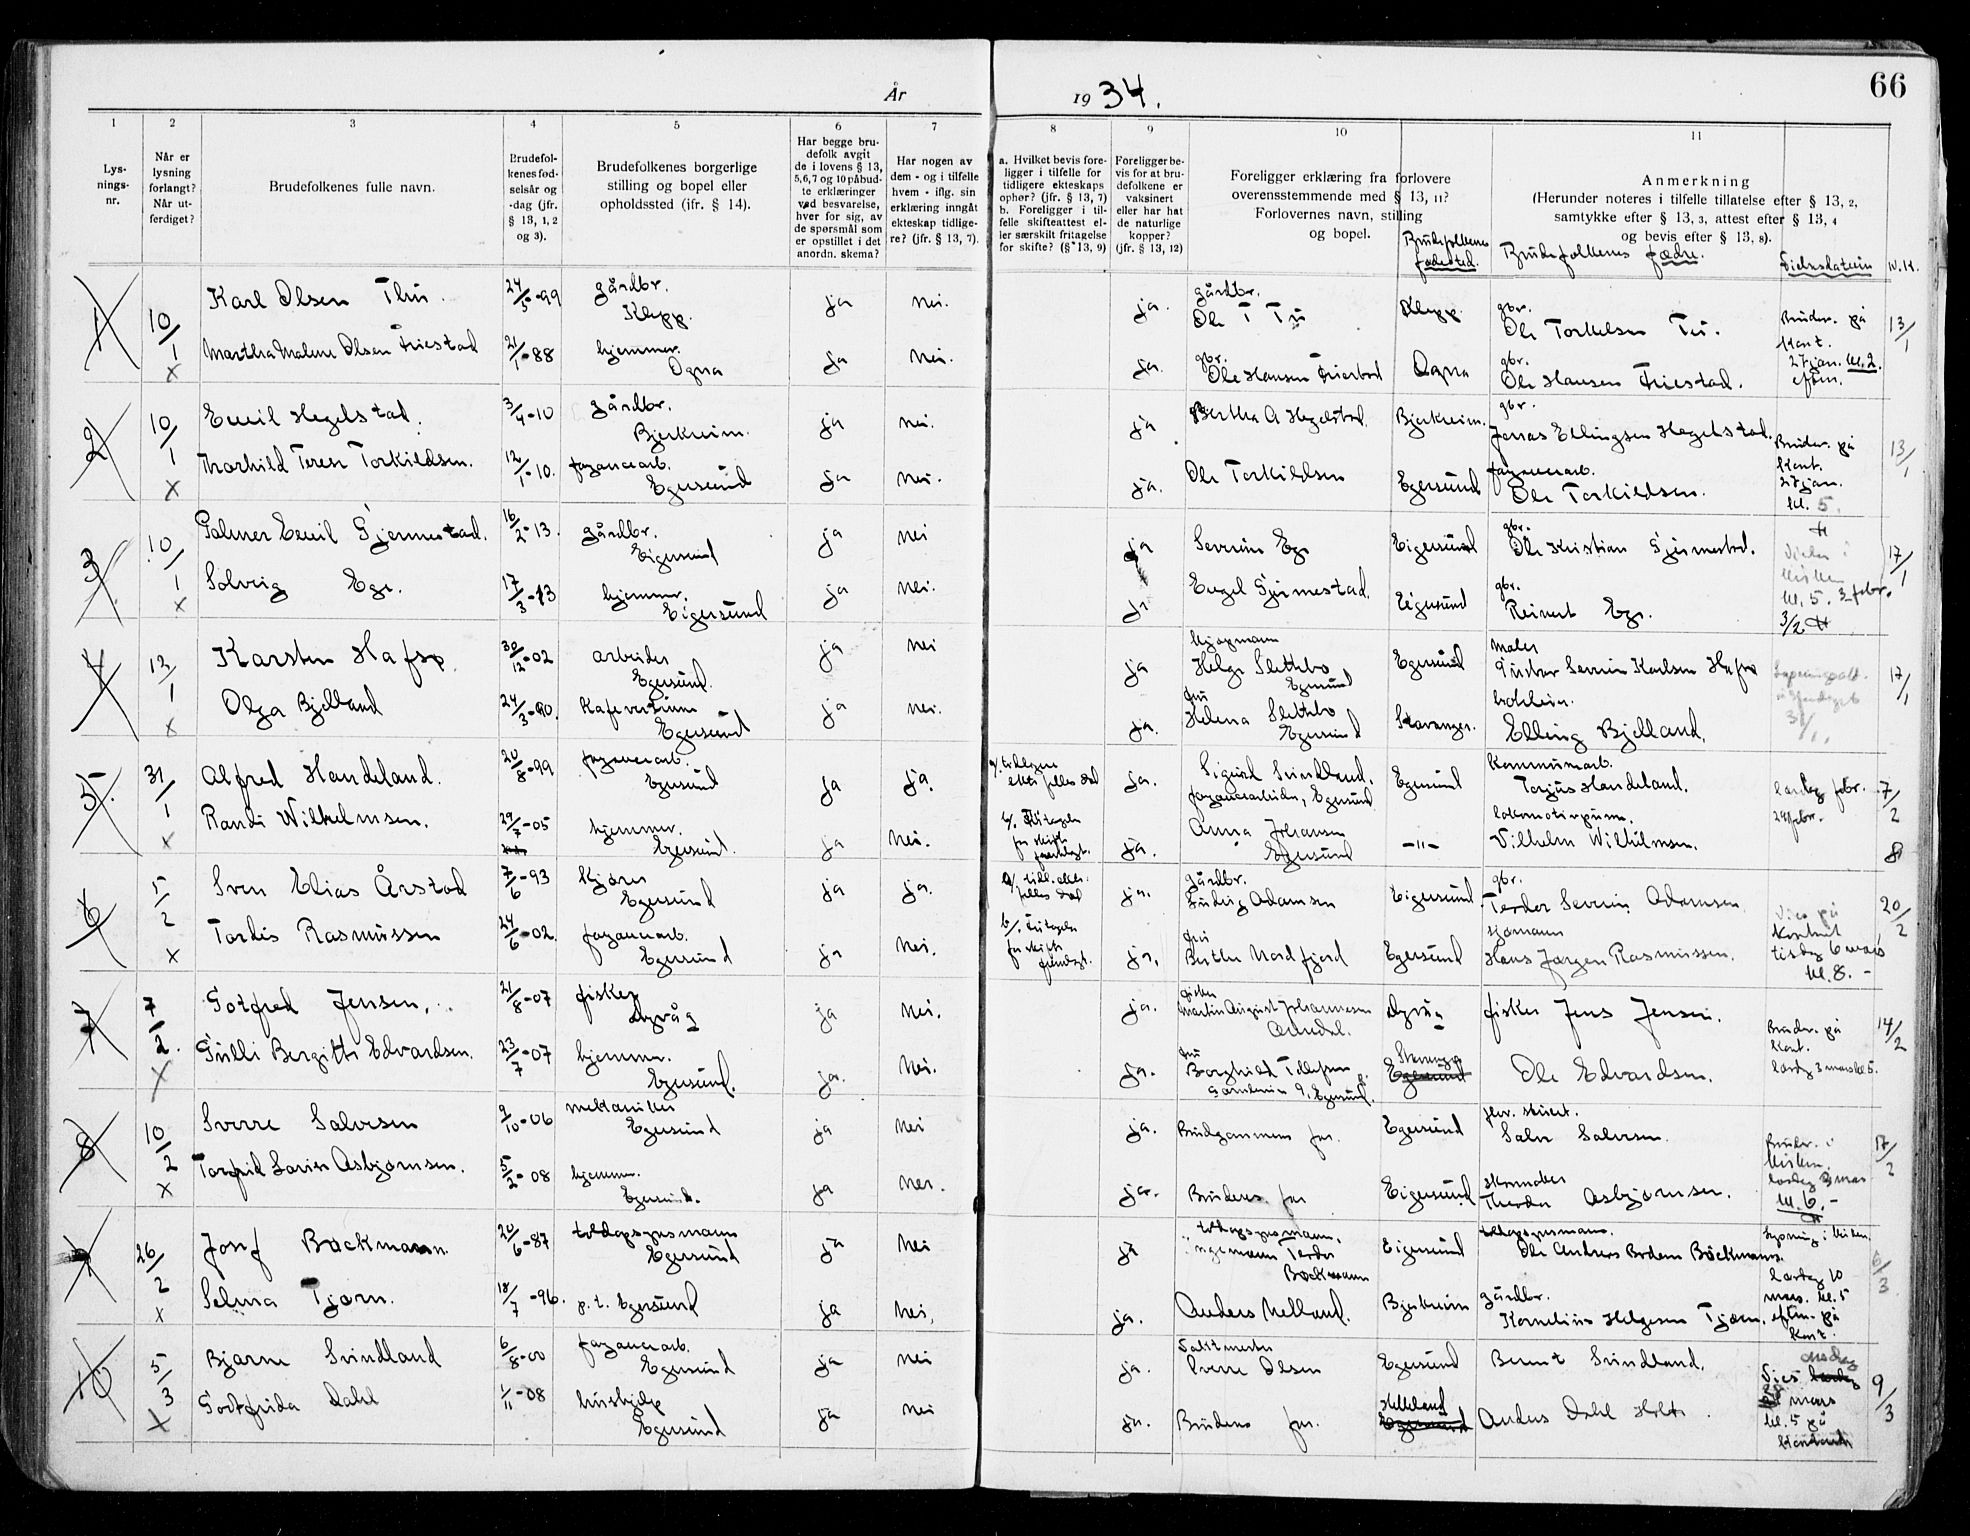 66
År 1934.
1 2 3 4 5 6 7 8 9 10 11
Lysnings-nr.
Når er lysning forlangt? Når utferdiget?
Brudefolkenes fulle navn.
Brudefolkenes fødselsår og -dag (jfr. § 13, 1, 2 og 3).
Brudefolkenes borgerlige stilling og bopel eller opholdssted (jfr. § 14).
Har begge brudefolk avgit de i lovens § 13, 5, 6, 7 og 10 påbudte erklæringer ved besvarelse, hver for sig, av de spørsmål som er opstillet i det anordn. skema?
Har nogen av dem - og i tilfelle hvem - iflg. sin erklæring inngåt ekteskap tidligere? (jfr. § 13, 7).
a. Hvilket bevis foreligger i tilfelle for tidligere ekteskaps ophør? (jfr. § 13, 7) b. Foreligger i tilfelle skifteattest eller særskilt fritagelse for skifte? (§ 13, 9)
Foreligger bevis for at brudefolkene er vaksinert eller har hat de naturlige kopper? (jfr. § 13, 12)
Foreligger erklæring fra forlovere overensstemmende med § 13, 11? Forlovernes navn, stilling og bopel.
Brudefolkenes fødested.
Anmerkning (Herunder noteres i tilfelle tillatelse efter § 13, 2, samtykke efter § 13, 3, attest efter § 13, 4 og bevis efter § 13, 8).
Brudefolkenes fedre. Vielsesdatoen
1 10/1 Karl Olsen Thu. 24/5-99 gårdbr. Klepp. ja nei. ja. gårdbr. Ole T Tu Klepp. gbr. Ole Torkelsen Tu. Bruder. på kont. 27 jan. kl. 2. eftm. 13/1
x Martha Malene Olsen Friestad 21/1-88 hjemmev. Ogna ja nei. ja. gbr. Ole Hansen Friestad Ogna gbr. Ole Hansen Friestad.
2 10/1 Emil Hegelstad. 3/4-10 gårdbr. Bjerkreim. ja nei. ja Bertha A Hegelstad Bjerkreim. gbr. Jonas Ellingsen Hegelstad. Bruder. på kont. 27 jan. kl. 5. 13/1
x Thorhild Terese Torkildsen. 12/1-10. fayancearb. Egersund ja nei. ja. Ole Torkildsen Egersund fayancearb. Ole Torkildsen.
3 10/1 Palmer Emil Gjermestad. 16/2-13. gårdbr. Eigersund ja nei ja Severin Ege Eigersund gbr. Ole Kristian Gjermestad. kl. 5. 3 febr. 3/2 17/1
x Solveig Ege. 17/3-13 hjemmev. Eigersund ja nei. ja Engel Gjermestad. Eigersund gbr. Reinert Ege.
4 12/1 Karsten Hafsø. 30/12-02 arbeider Egersund. ja nei ja kjøpmann Helge Slettebø Egersund Egersund maler Gustav Severin Karlsen Hafsø 17/1
x Olga Bjelland 24/3-90. Kafevertinne Egersund ja nei. ja. fru Helena Slettebø Egersund Stavanger. Elling Bjelland.
5. 31/1 Alfred Handeland. 20/8-99 fayancearb. Egersund ja ja. ja. Sigurd Svindland. fayancearbeider, Egersund Egersund kommunearb. Torjus Handeland. lørdag 24 febr. 7/2
x Randi Wilhelmsen. 29/7-05 hjemmev. Egersund. ja nei. ja. Anna Johansen Egersund -"- Vilhelm Wilhelmsen. 8
6 5/2 Sven Elias Årstad 7/6-93 kjører Egersund ja ja. ja. gårdbr. Ludvig Adamsen Eigersund. gbr. Severin Adamsen. Vies på kontoret tirsdag 6 mars kl. 8. - 20/2
x Tordis Rasmussen 24/6-02. fayancearb. Egersund ja nei. ja. fru Berthe Nordfjord Egersund sjømann Hans Jørgen Rasmussen.
7 7/2. Gotfred Jensen. 21/8-07 fisker Dypvåg ja nei. ja. fisker Martin August Johannesen Arendal. Dypvåg fisker Jens Jensen. Bruder. på kont. lørdag 3 mars kl. 5. 14/2
x Gulli Bergitte Edvardsen. 23/7-07 hjemmev. Egersund. ja. nei. ja. fru Borghild Tollefsen Egersund. Stavanger Egersund Ole Edvardsen.
8 10/2 Sverre Salvesen 9/10-06 mekaniker Egersund ja nei ja. Brudgommens far. Egersund Salve Salvesen. Bruder. i kirken. lørdag 3 mars kl. 6. - 17/2
x Torfrid Lovise Asbjørnsen. 5/2-08 hjemmev. Egersund. ja nei. ja. Brudens far Eigersund. skomaker Theodor Asbjørnsen.
9 26/2 Josef Bøckmann. 20/6-87 toldopsynsmann Egersund ja nei ja toldopsynsmann, Bøckmann Eigersund toldopsynsmann. Ole Andreas Bøckmann. lørdag 10 mars. kl. 5 eftm. på kont. 6/3
x Selma Tjørn. 18/7-96. p.t. Egersund ja nei. ja. Anders Nelland. Bjerkreim gårdbr. Kornelius Helgesen Tjørn.
10 5/3 Bjarne Svindland 6/8-00 fayancearb. Egersund ja nei ja. Sverre Olsen Egersund Bernt Svindland. Vies lørdag onsdag 28 mars kl. 5 på kontoret 9/3
x Godfrida Dahl 1/11-08 hushjelp Egersund ja nei ja. Brudens far. Helleland Egersund Anders Dahl